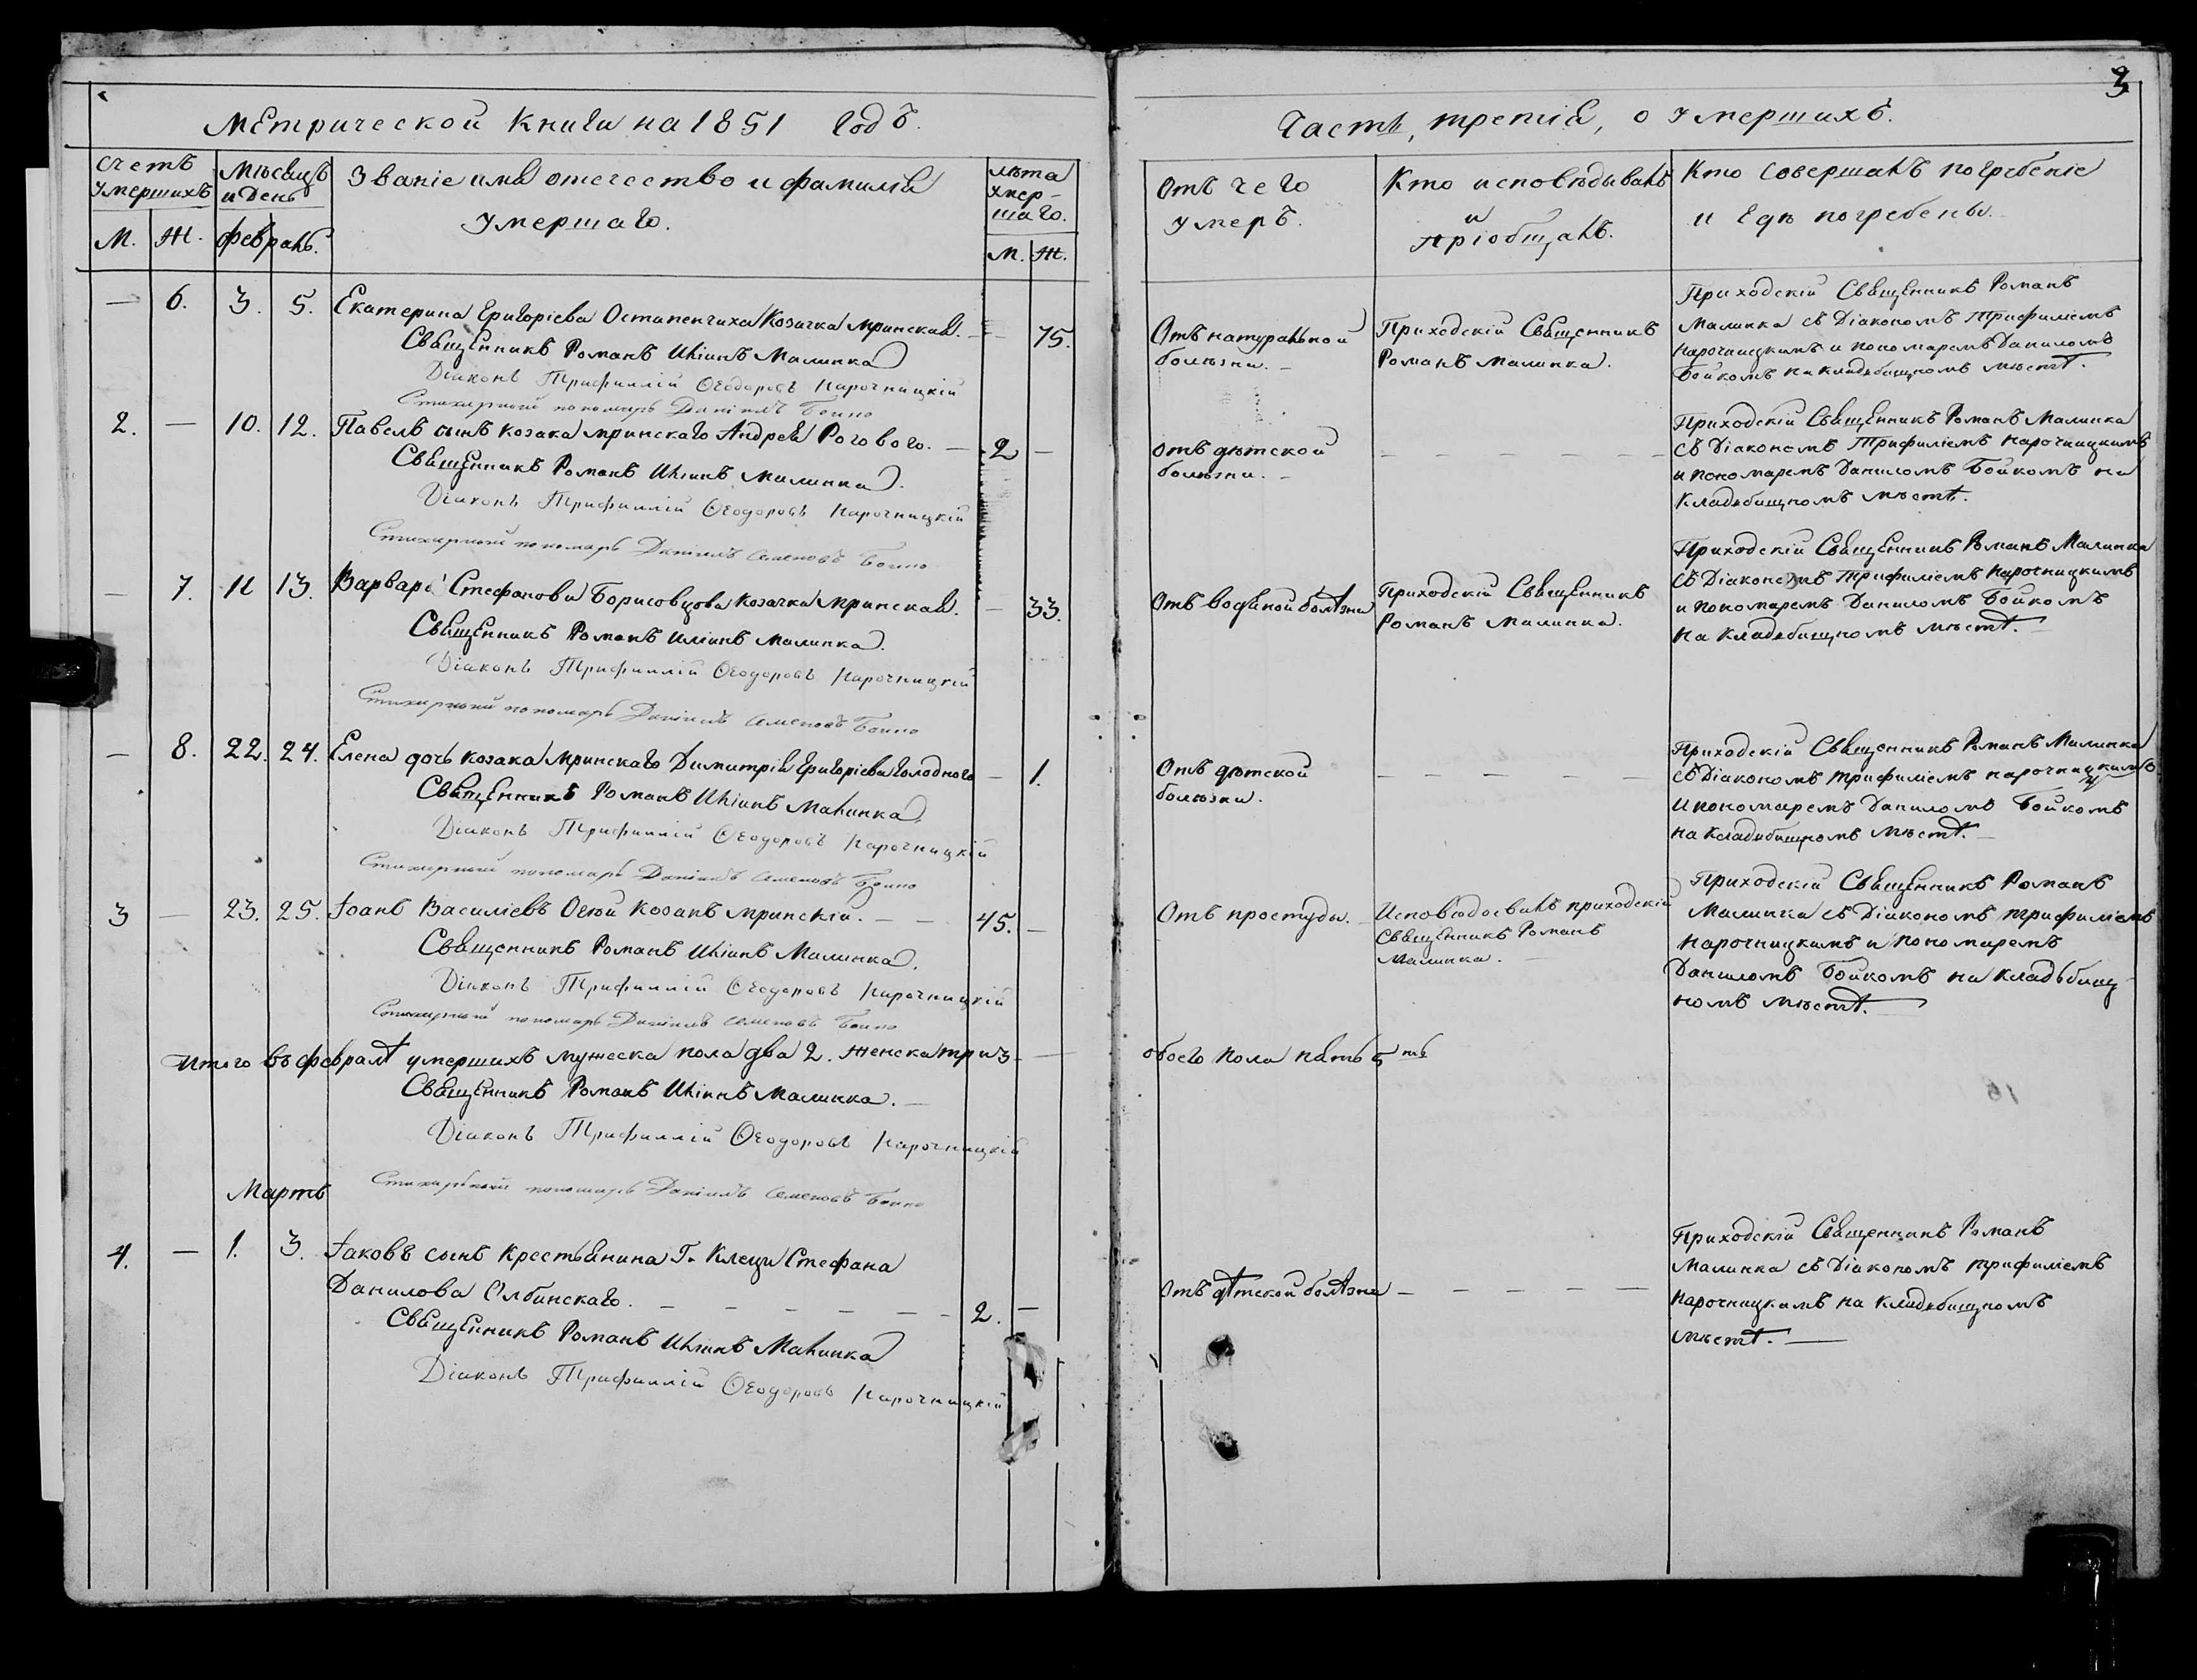 Метрической Книги на 1851 Годъ.
Счетъ Умершихъ
М. Ж.
Мѣсяцъ и День
Февраль.
Званіе имя отечество и фамилія
Умершаго.
лѣта умер-
шаго.
М. Ж.
— 6. 3. 5. Екатерина Григоріева Остапенчиха Козачка Мринская. — 75.
Священникъ Романъ Иліинъ Малинка
Діаконъ Трифиллій Ѳеодоровъ Нарочницкій
Стихирный пономарь Даніилъ Бойко
2. — 10. 12. Павелъ сынъ козака мринскаго Андрея Рогового. — 2 —
Священникъ Романъ Иліинъ Малинка.
Діаконъ Трифиллій Ѳеодоровъ Нарочницкій
Стихирный пономарь Даніилъ Семеновъ Бойко
— 7. 11 13. Варвара Стефанова Борисовцова Козачка Мринская. — 33.
Священникъ Романъ Иліинъ Малинка.
Діаконъ Трифиллій Ѳеодоровъ Нарочницкій
Стихирный пономарь Даніилъ Семеновъ Бойко
— 8. 22. 24. Елена дочь козака Мринскаго Димитрія Григоріева Голодного — 1.
Священникъ Романъ Иліинъ Малинка.
Діаконъ Трифиллій Ѳеодоровъ Нарочницкій
Стихирный пономарь Даніилъ Семеновъ Бойко
3 — 23. 25. Іоанъ Василіевъ Козакъ мринскій. — — 45. —
Священникъ Романъ Иліинъ Малинка.
Діаконъ Трифиллій Ѳеодоровъ Нарочницкій
Стихирный пономарь Даніилъ Семеновъ Бойко
Итого въ февралѣ умершихъ мужеска пола два 2. женска три 3 —
Священникъ Романъ Иліинъ Малинка. —
Діаконъ Трифиллій Ѳеодоровъ Нарочницкій
Стихирный пономарь Даніилъ Семеновъ Бойко
Мартъ
4. — 1. 3. Іаковъ сынъ Крестьянина Г. Стефана
Данилова Олбинскаго. — — — — — — 2. —
Священникъ Романъ Иліинъ Малинка
Діаконъ Трифиллій Ѳеодоровъ Нарочницкій
3
Часть, третія, о Умершихъ.
Отъ чего
умеръ.
Кто исповѣдывалъ
и
пріобщалъ.
Кто совершалъ погребеніе
и Где погребены.
Отъ натуральной
болѣзни. —
Приходскій Священникъ
Романъ Малинка.
Приходскій Священникъ Романъ
Малинка съ Діакономъ Трифиліемъ
Нарочницкимъ и пономаремъ Даниломъ
Бойкомъ на кладебищномъ мѣстѣ.
отъ дѣтской
болѣзни. —
— — — — — —
Приходскій Священникъ Романъ Малинка
съ Діакономъ Трифиліемъ Нарочницкимъ
и пономаремъ Даниломъ Бойкомъ на
Кладебищномъ мѣстѣ.
Отъ водяной болѣзни
Приходскій Священникъ
Романъ Малинка.
Приходскій Священникъ Романъ Малинка
съ Діакономъ Трифиліемъ Нарочницкимъ
и пономаремъ Даниломъ Бойкомъ
на кладебищномъ мѣстѣ. —
Отъ дѣтской
болѣзни.
— — — — —
Приходскій Священникъ Романъ Малинка
съ Діакономъ трифиліемъ нарочницкимъ
и пономаремъ Даниломъ Бойкомъ
на кладебищномъ мѣстѣ. —
Отъ простуды.
Исповѣдовалъ приходскій
Священникъ Романъ
Малинка. —
Приходскій Священникъ Романъ
Малинка съ Діакономъ трифиліемъ
нарочницкимъ и пономаремъ
Даниломъ Бойкомъ на кладьбищ-
номъ мѣстѣ. —
обоего пола пять 5 ть
Отъ дѣтской болѣзни — — — — —
Приходскій Священникъ Романъ
Малинка съ Діакономъ трифиліемъ
Нарочницкимъ на кладебищномъ
мѣстѣ. —